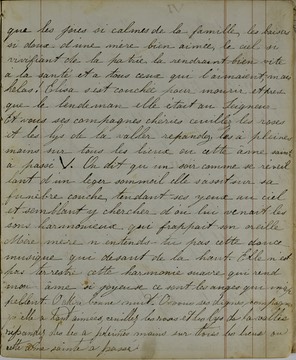 que les joies si calmes de la famille, les baisers
si doux d'une mère bien aimée, le ciel si
vivifiant de la patrie la rendraient bien vite
à la santé et à tous ceux qui l'aimaient, mais
hélas! Elisa s'est couchée pour mourir et
que le lendemain elle était au Seigneur.
Et vous ses compagnes chéries cueillez les roses
et les lys de la vallée repandez les à pleines
mains sur tous les lieux ou cette âme sainte
a passé V. On dit qu'un soir comme se réveil
lant d'un léger sommeil elle s'assit sur sa
funèbre couche, tendant ses yeux au ciel
et semblant y chercher d'ou lui venait les
sons harmonieux qui frappait son oreille
Mère, mère n'entends tu pas cette douce
musique qui descent de la haut. Elle n'est
pas terrestre cette harmonie suave qui rend
mon âme si joyeuse ce sont les anges qui m'ap
pelent. O dieu bonne nuit. O vous ses dignes compagnes
qu'elle a tant aimées, cueillez les roses et les lys de la vallée
repandez les à pleines mains sur tous les lieux ou
cette âme sainte a passé